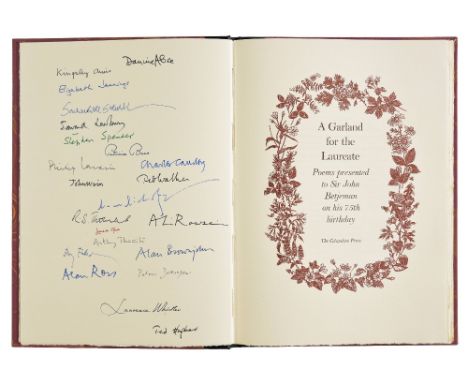 Dannie Abse
Kingsley Amis
Elizabeth Jennings
Sacheverell Sitwell
Edward Lowbury
Stephen Spender
Patricia Beer
Philip Larkin
Charles Causley
John Wain
Ted Walker
R.S. Thomas
A L Rowse
Anthony Thwaite
Roy Fuller
Alan Brownjohn
Alan Ross
Laurence Whistler
Ted Hughes
A Garland
for the
Laureate
Poems presented
to Sir John
Betjeman
on his 75th
birthday
The Celandine Press